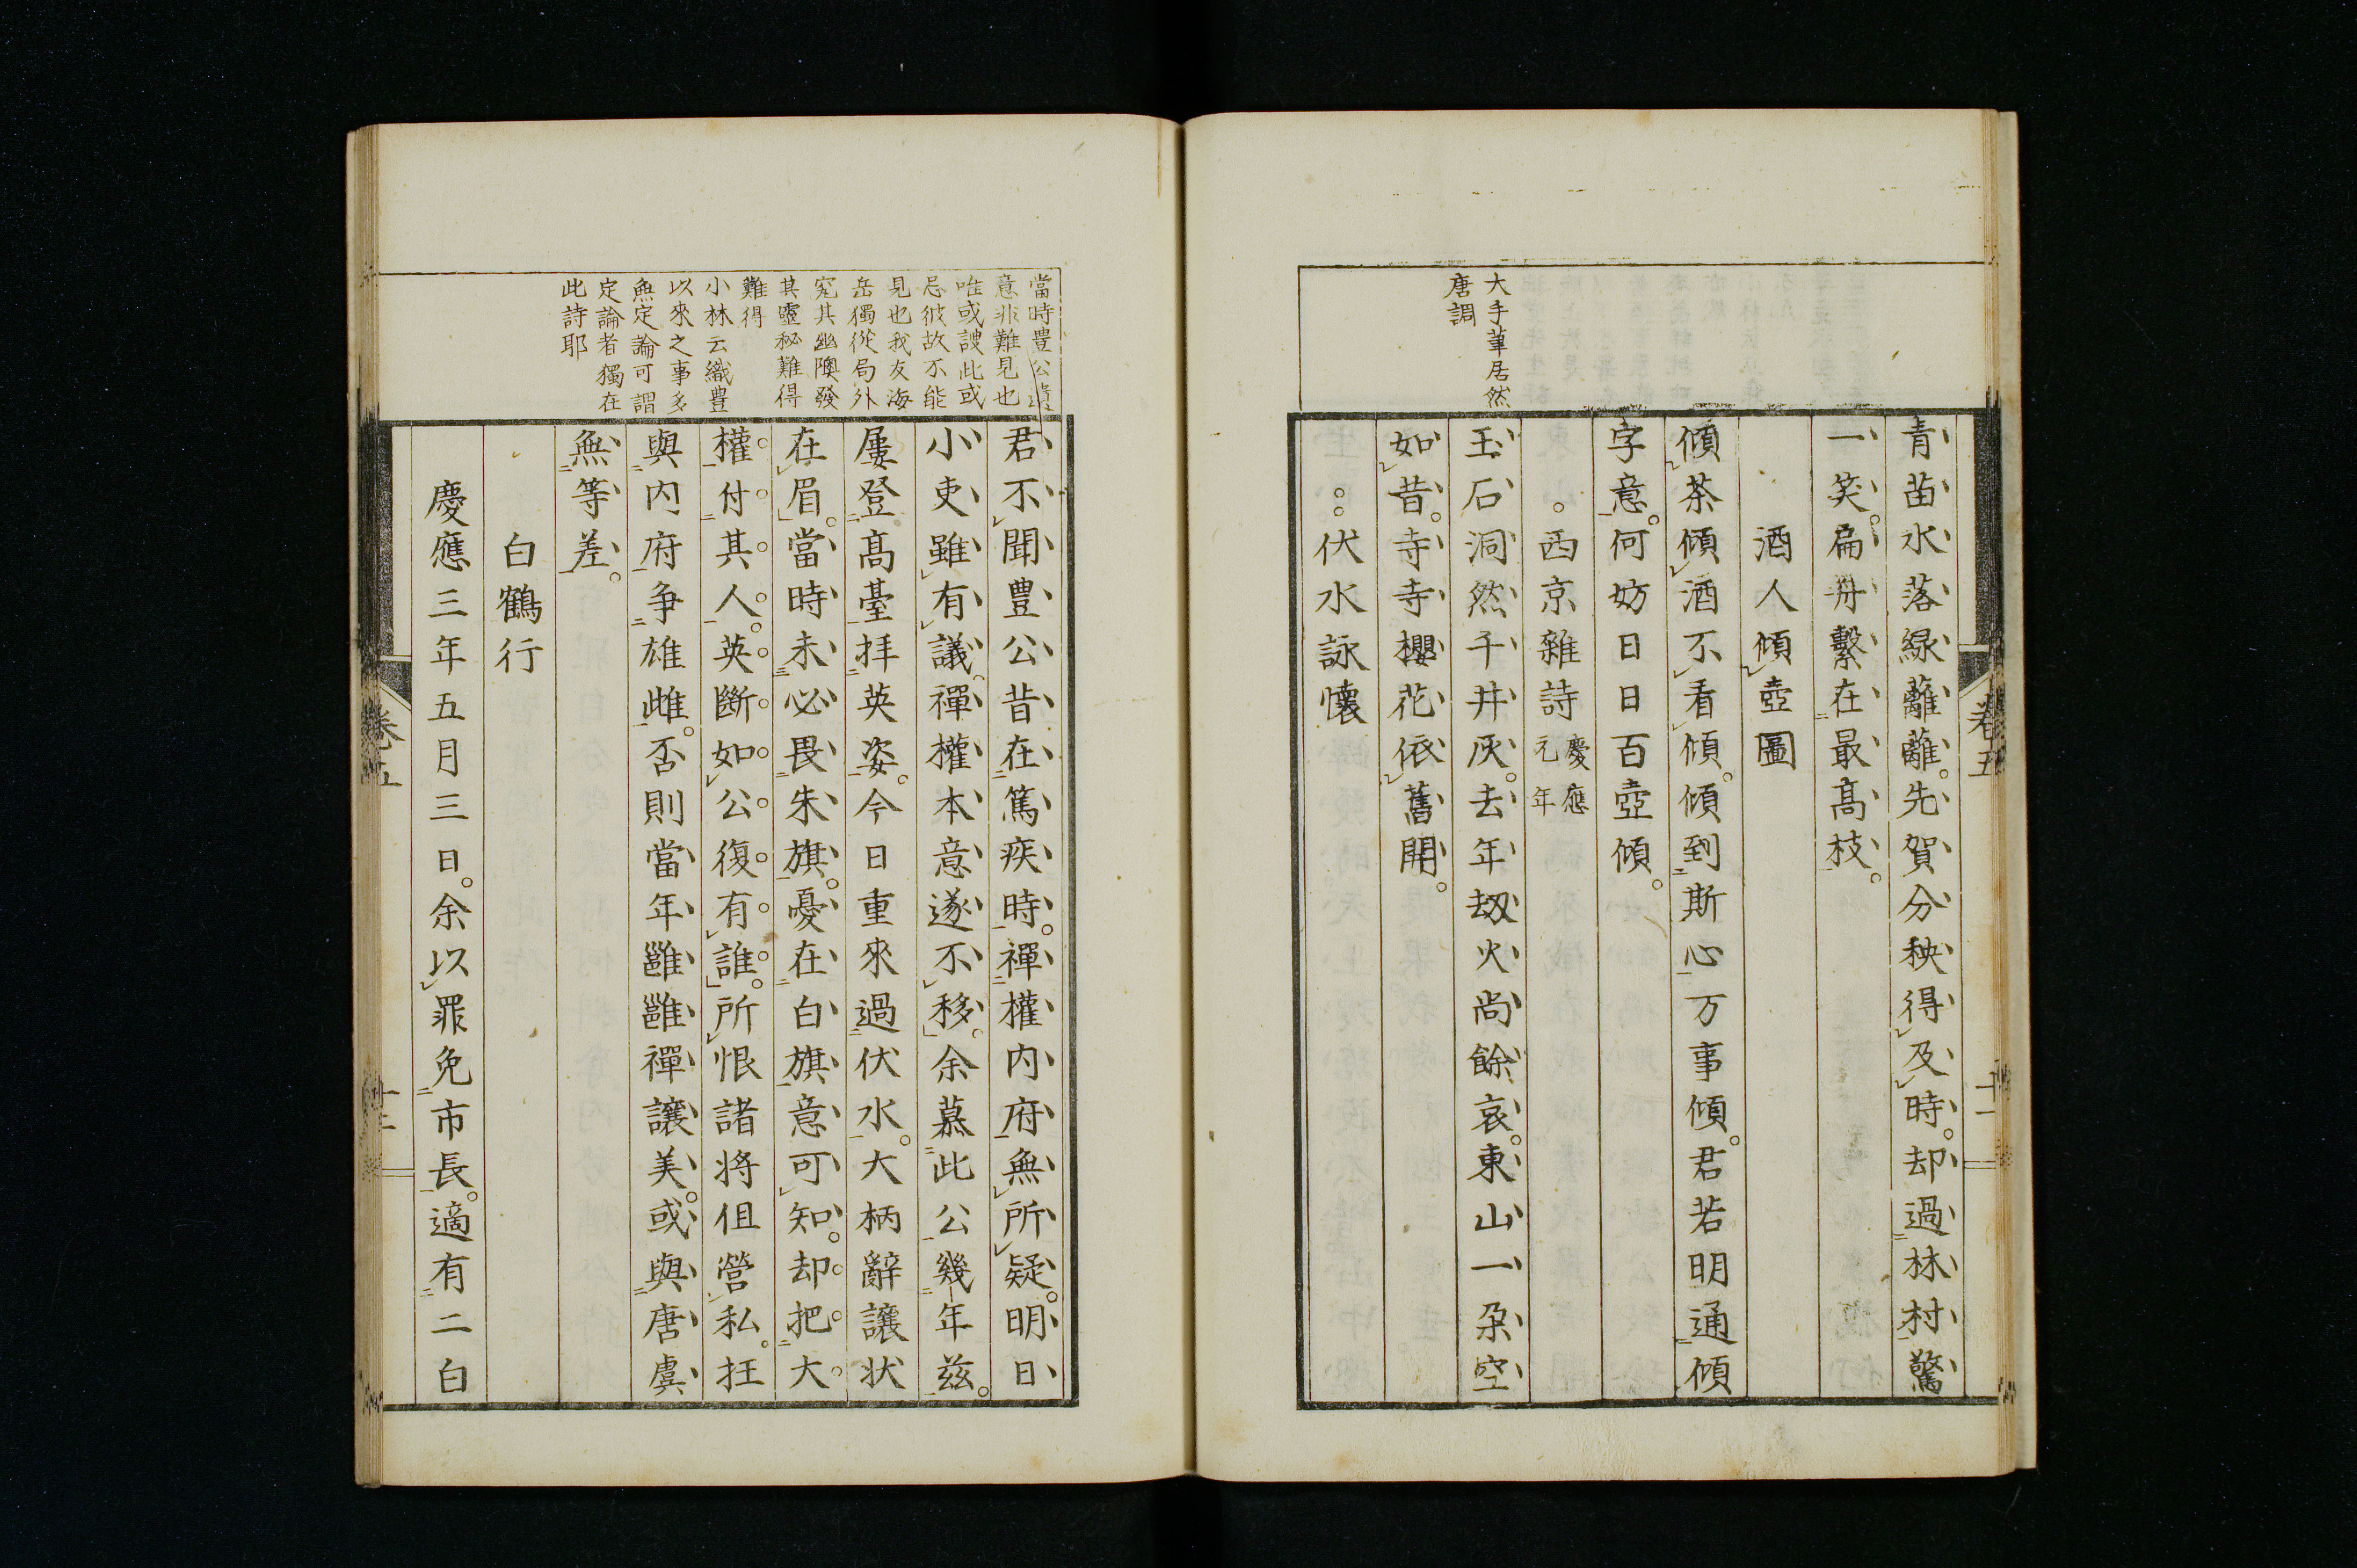 大手筆居然
唐調
青苗水落綠離離。先賀分秧得及時。却過林村驚
一笑。扁舟繫在最高枝。
酒人傾壺圖
傾茶傾酒不看傾。傾到斯心万事傾。君若明通傾
字意。何妨日日百壺傾。
西京雜詩慶應元年
玉石洞然千井灰。去年劫火尚餘哀。東山一朶空
如昔。寺寺櫻花依舊開。
伏水詠懷
卷五
十一
當時豊公遺
意非難見也
唯或諛此或
忌彼故不能
見也我友海
岳獨從局外
究其幽隩發
其靈秘難得
難得
小林云織豊
以來之事多
無定論可謂
定論者獨在
此詩耶
君不聞豊公昔在篤疾時。禪權內府無所疑。明日
小吏雖有議。禪權本意遂不移。余慕此公幾年茲。
屢登高臺拝英姿。今日重來過伏水。大柄辭讓狀
在眉。當時未必畏朱旗。憂在白旗意可知。却把大
權付其人。英斷如公復有誰。所恨諸将但營私。抂
與內府争雄雌。否則當年雝雝禪讓美。或與唐虞
無等差。
白鶴行
慶應三年五月三日。余以罪免市長。適有二白
卷五